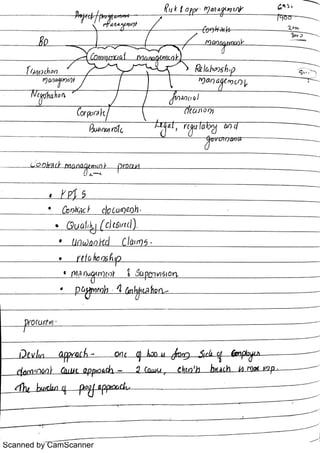 Risk & oppr. management
Project/programme
management
1900
Contracts
management
BD
Commercial management
Transaction
management
Relationship
management
Negotiation
financial
decisions
Corporate/
Business role
Legal, regulatory and
governance
Contract management process
• KPI s
• Contract documents.
• Quality (desired)
• unwanted Claims.
• relationship
• management & Supervision
• payments & Certification
procurem
Devlin approach - one of two is from side of employer
dominant cause approach - 2 cause, which breach is more resp.
The burden of proof approach.
Scanned by CamScanner